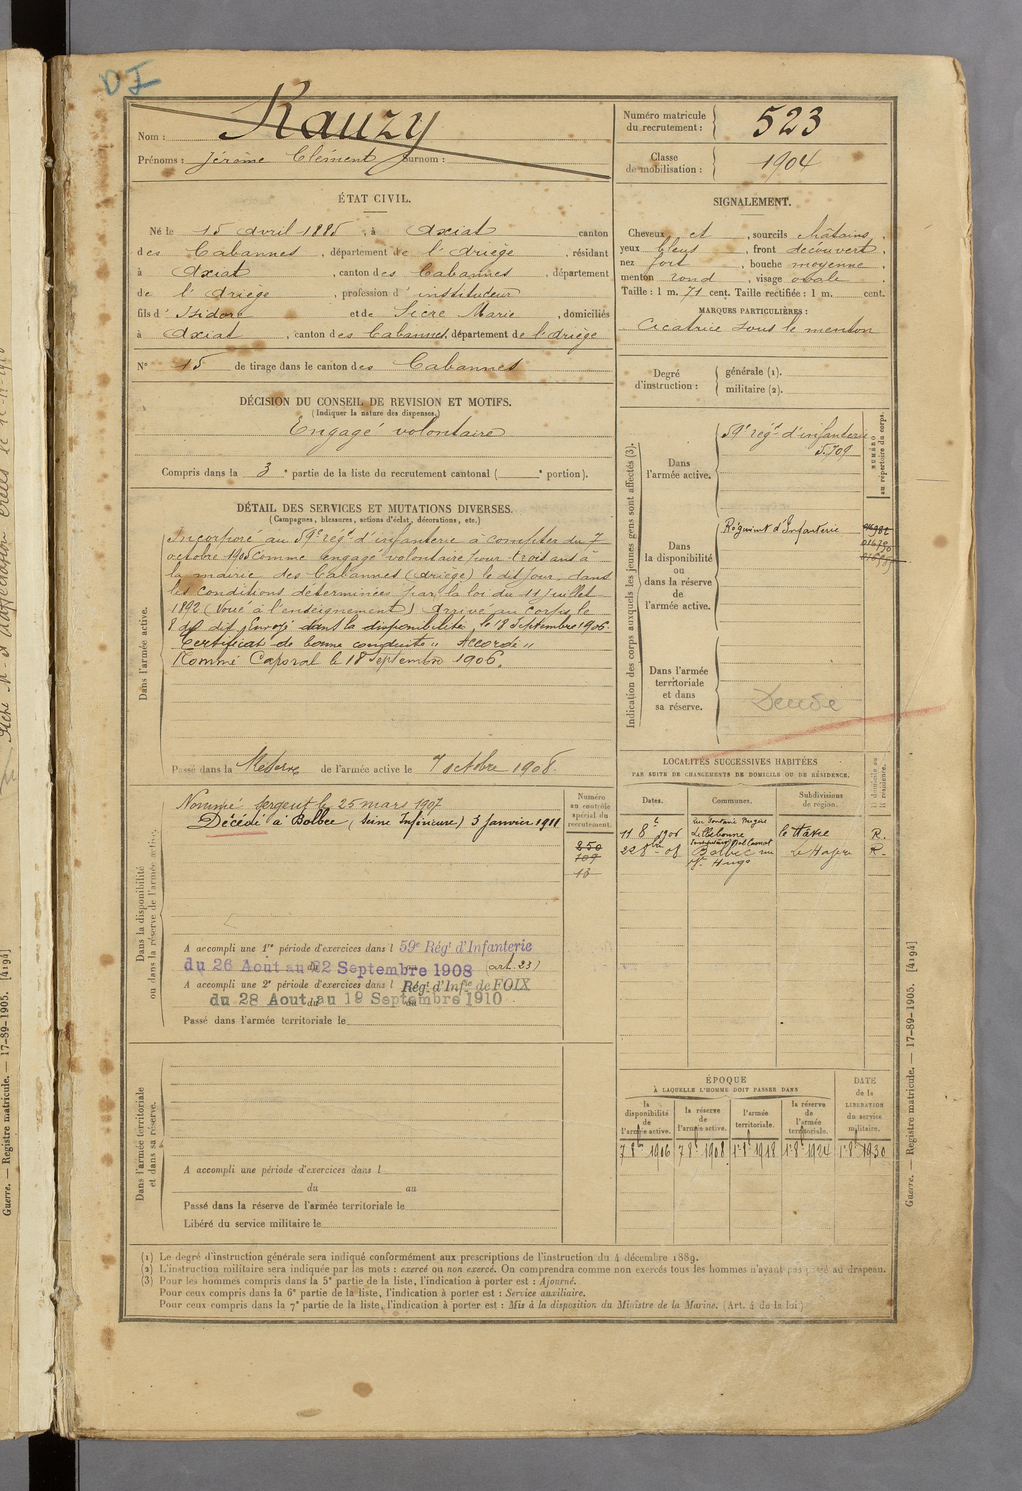 DI
Nom : Rauzy
Prénoms : Jérôme Clément Surnom :
Numéro matricule du recrutement : 523
Classe de mobilisation : 1904
ÉTAT CIVIL.
Né le 15 avril 1885, à Axiat canton
des Cabannes, département de l'Ariège, résidant
à Axiat, canton des Cabannes, département
de l'Ariège, profession d'instituteur
fils d'Isidore et de Sicre Marie, domiciliés
à Axiat, canton des Cabannes, département de l'Ariège
N° 15 de tirage dans le canton des Cabannes
SIGNALEMENT.
Cheveux et, sourcils châtains,
yeux bleus, front découvert,
nez fort, bouche moyenne,
menton rond, visage ovale.
Taille : 1 m. 71 cent. Taille rectifiée : 1 m. cent.
MARQUES PARTICULIÈRES :
Cicatrice sous le menton
Degré d'instruction : générale (1).
militaire (2).
DÉCISION DU CONSEIL DE REVISION ET MOTIFS.
(Indiquer la nature des dispenses.)
Engagé volontaire
Compris dans la 3e partie de la liste du recrutement cantonal ( e portion).
DÉTAIL DES SERVICES ET MUTATIONS DIVERSES.
(Campagnes, blessures, actions d'éclat, décorations, etc.)
Dans l'armée active.
Incorporé au 59e régt d'infanterie à compter du 7
octobre 1905 comme engagé volontaire pour trois ans à
la mairie des Cabannes (Ariège) le dit jour, dans
les conditions déterminées par la loi du 11 juillet
1892 (Voué à l'enseignement) Arrivé au corps le
8 du dit. Envoyé dans la disponibilité le 18 Septembre 1906.
Certificat de bonne conduite " Accordé "
Nommé Caporal le 18 Septembre 1906.
Passé dans la Réserve de l'armée active le 7 octobre 1908.
Indication des corps auxquels les jeunes gens sont affectés (3).
NUMÉRO au répertoire du corps.
Dans l'armée active.
59e régt d'infanterie
5.709
Dans la disponibilité ou dans la réserve de l'armée active.
Régiment d'Infanterie
Dans l'armée territoriale et dans sa réserve.
LOCALITÉS SUCCESSIVES HABITÉES
PAR SUITE DE CHANGEMENTS DE DOMICILE OU DE RÉSIDENCE.
Dates. Communes. Subdivisions de région. D. domicile ou R. résidence.
11 8e 1906 Lillebonne le Havre R.
22 8bre 08 Bolbec rue Le Havre R.
Vr Hugo
Dans la disponibilité ou dans la réserve de l'armée active.
Numéro au contrôle spécial du recrutement.
Nommé Sergent le 25 mars 1907
Décédé à Bolbec (Seine Inférieure) 3 Janvier 1911
250
109
13
A accompli une 1re période d'exercices dans l 59e Régt d'Infanterie
du 26 Aout au 22 Septembre 1908 (art. 23)
A accompli une 2e période d'exercices dans l Régt d'Infie de FOIX
du 28 Aout au 19 Septembre 1910
Passé dans l'armée territoriale le
Dans l'armée territoriale et dans sa réserve.
A accompli une période d'exercices dans l
du au
Passé dans la réserve de l'armée territoriale le
Libéré du service militaire le
ÉPOQUE
À LAQUELLE L'HOMME DOIT PASSER DANS
la disponibilité de l'armée active. la réserve de l'armée active. l'armée territoriale. la réserve de l'armée territoriale.
DATE de la LIBÉRATION du service militaire.
7 8bre 1906 7 8bre 1908 1er 8bre 1918 1er 8bre 1924 1er 8bre 1930
(1) Le degré d'instruction générale sera indiqué conformément aux prescriptions de l'instruction du 4 décembre 1889.
(2) L'instruction militaire sera indiquée par les mots : exercé ou non exercé. On comprendra comme non exercés tous les hommes n'ayant pas passé au drapeau.
(3) Pour les hommes compris dans la 5e partie de la liste, l'indication à porter est : Ajourné.
Pour ceux compris dans la 6e partie de la liste, l'indication à porter est : Service auxiliaire.
Pour ceux compris dans la 7e partie de la liste, l'indication à porter est : Mis à la disposition du Ministre de la Marine. (Art. 4 de la loi)
Guerre. — Registre matricule. — 17-89-1905. [4194]
Guerre. — Registre matricule. — 17-89-1905. [4194]